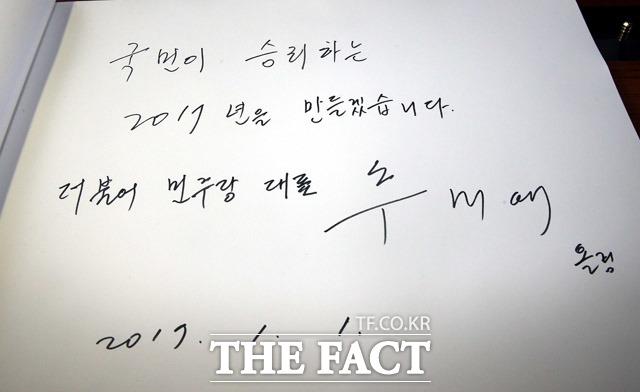 국민이 승리하는
2017 년을 만들겠습니다.
더불어 민주당 대표 추미애
올림
2017. 1. 1.
TF.CO.KR
THE FACT